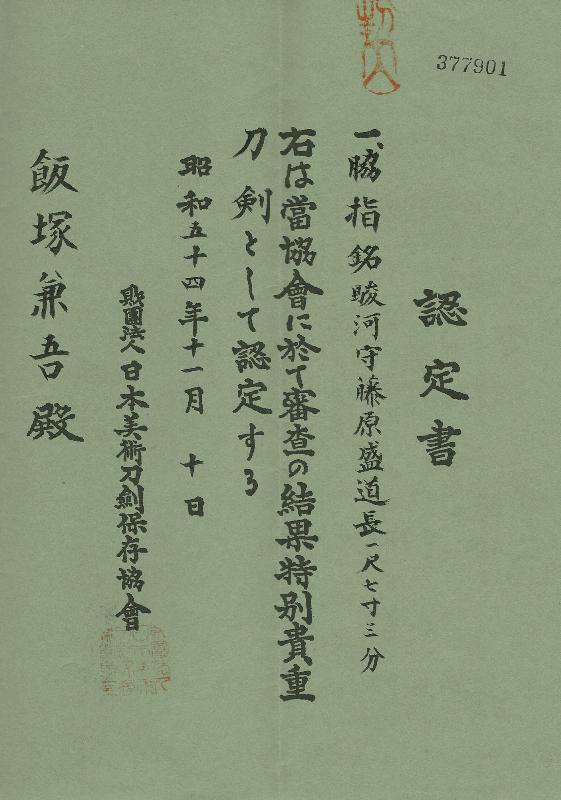 377901
認定書
一、脇指 銘 駿河守藤原盛道 長一尺七寸三分
右は當協會に於て審査の結果特別貴重
刀剣として認定する
昭和五十四年十一月 十日
財團法人日本美術刀剣保存協會
飯塚兼吾殿